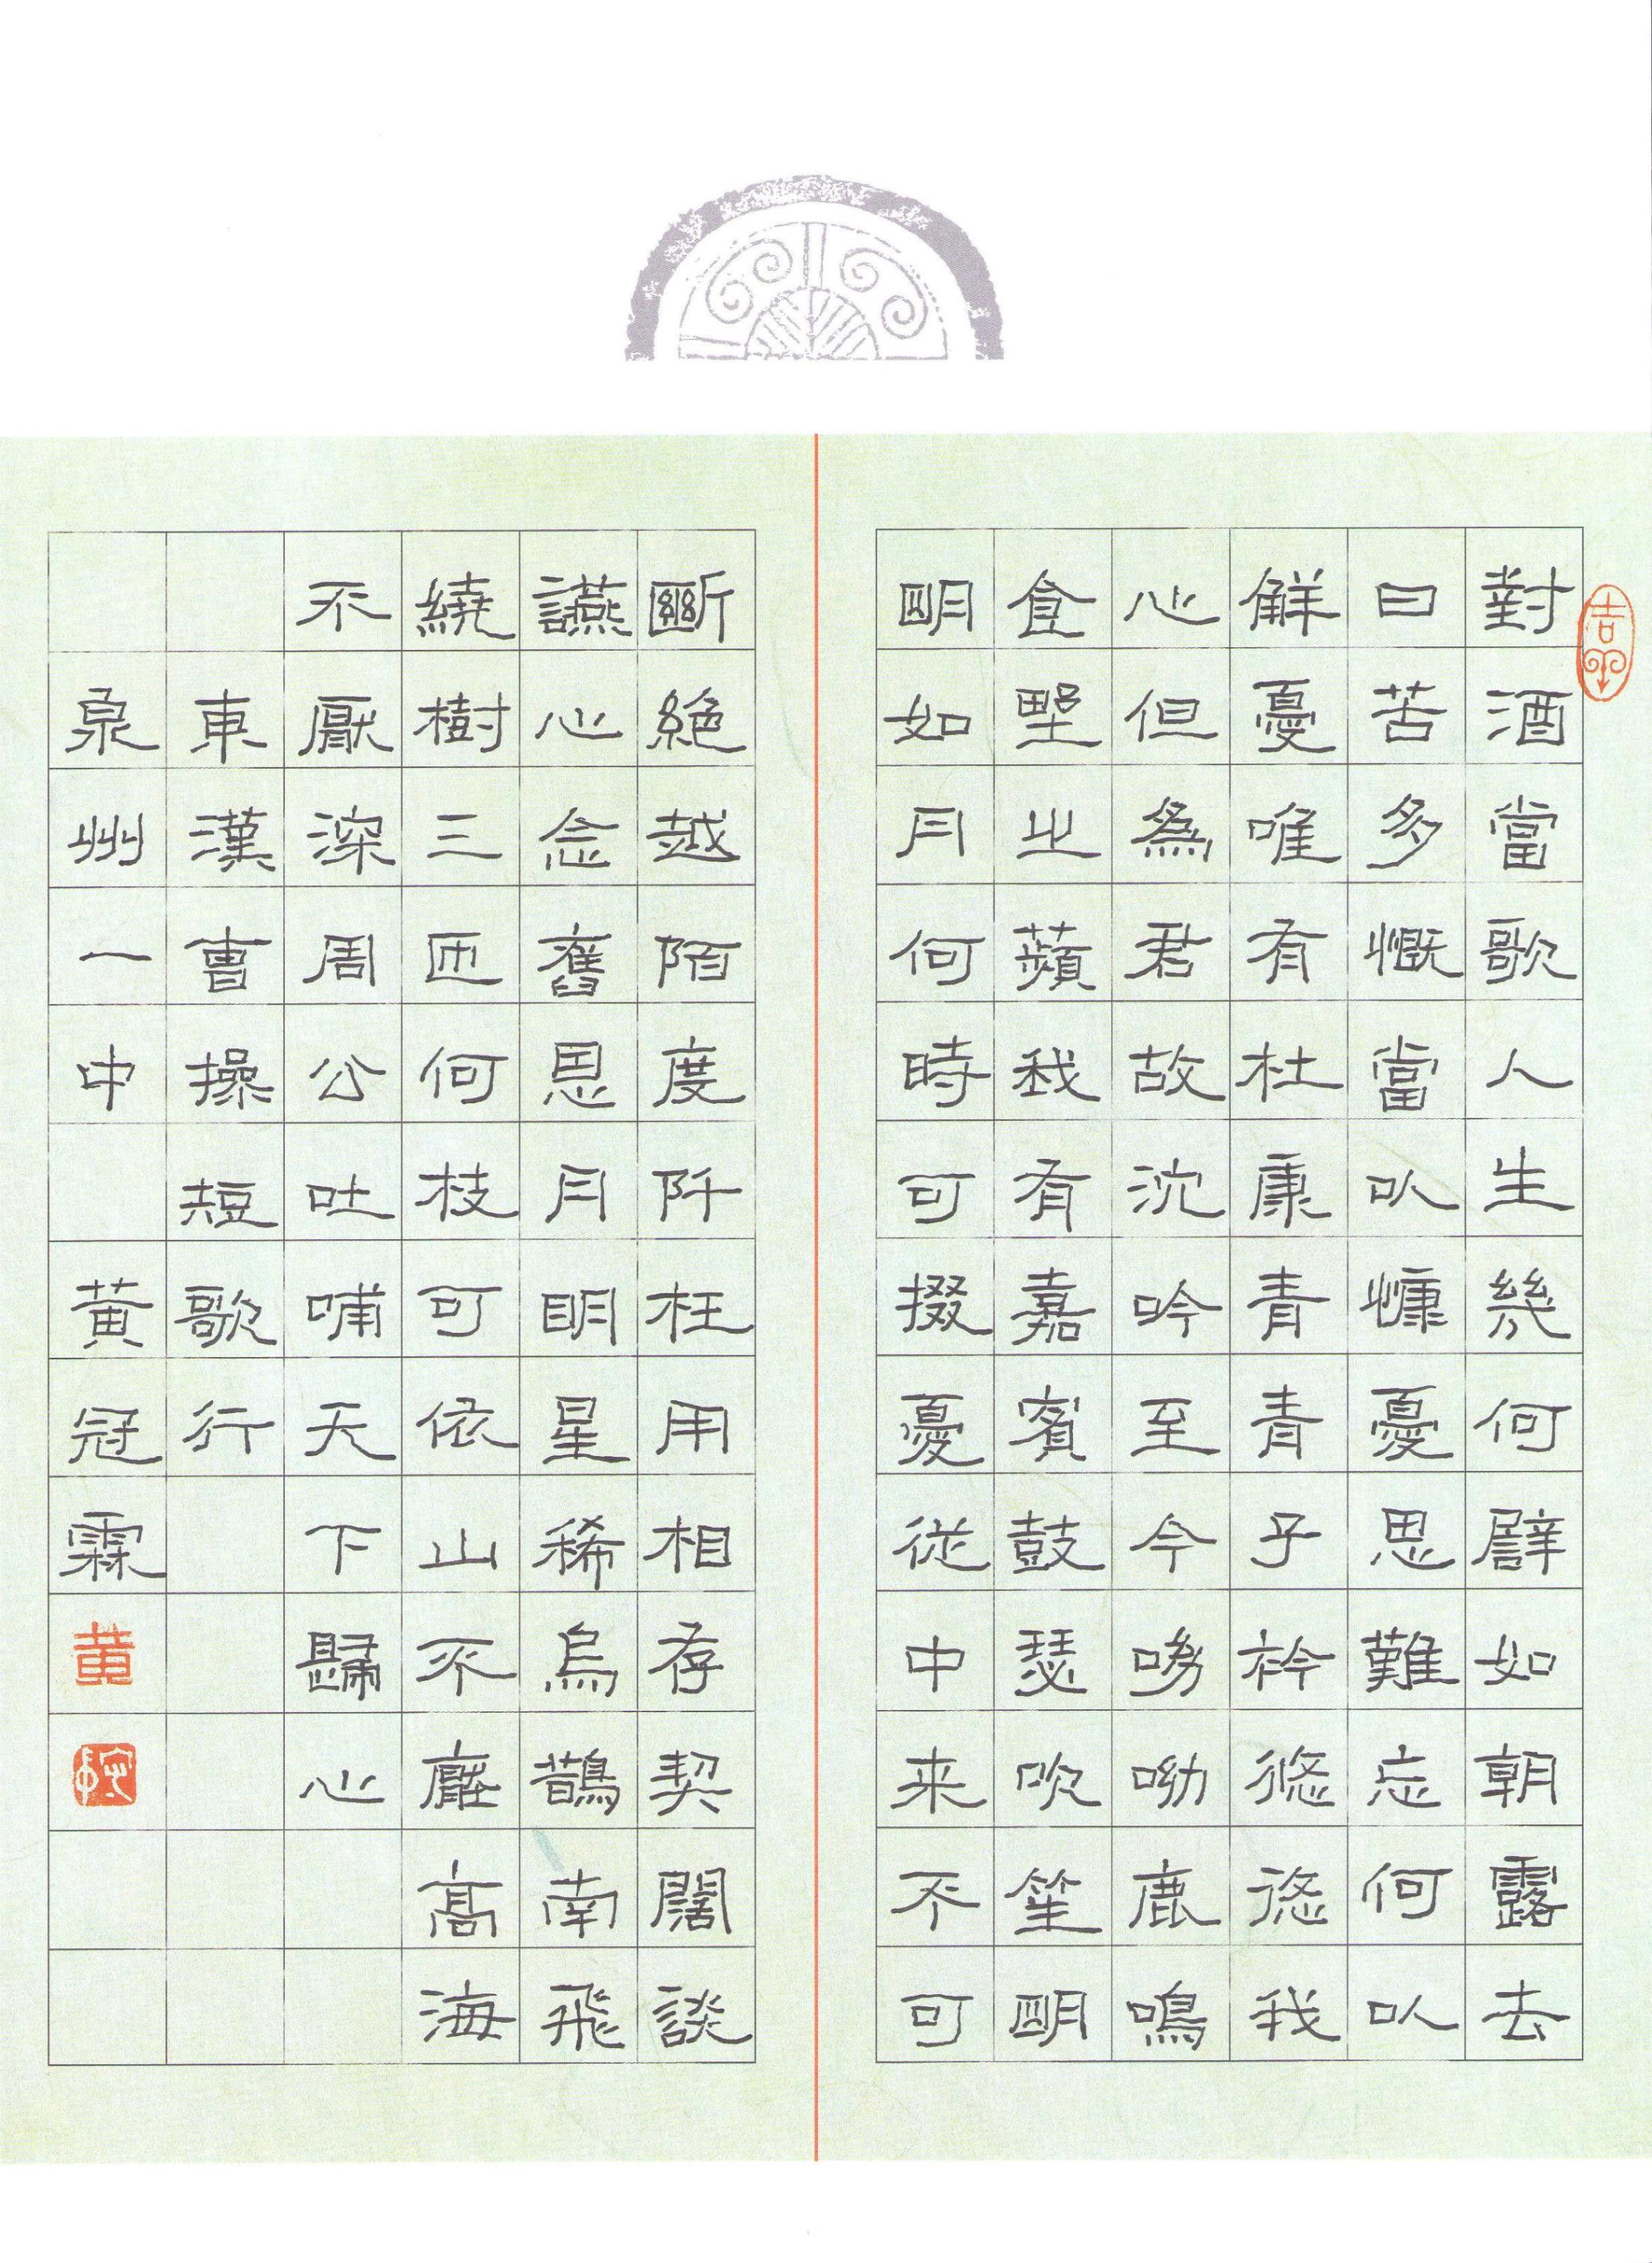 對酒當歌人生幾何譬如朝露去
日苦多慨當以慷憂思難忘何以
解憂唯有杜康青青子衿悠悠我
心但為君故沈吟至今呦呦鹿鳴
食野之蘋我有嘉賓鼓瑟吹笙明
明如月何時可掇憂從中来不可
斷絕越陌度阡枉用相存契闊談
讌心念舊恩月明星稀烏鵲南飛
繞樹三匝何枝可依山不厭高海
不厭深周公吐哺天下歸心
東漢曹操短歌行
泉州一中 黃冠霖
黃